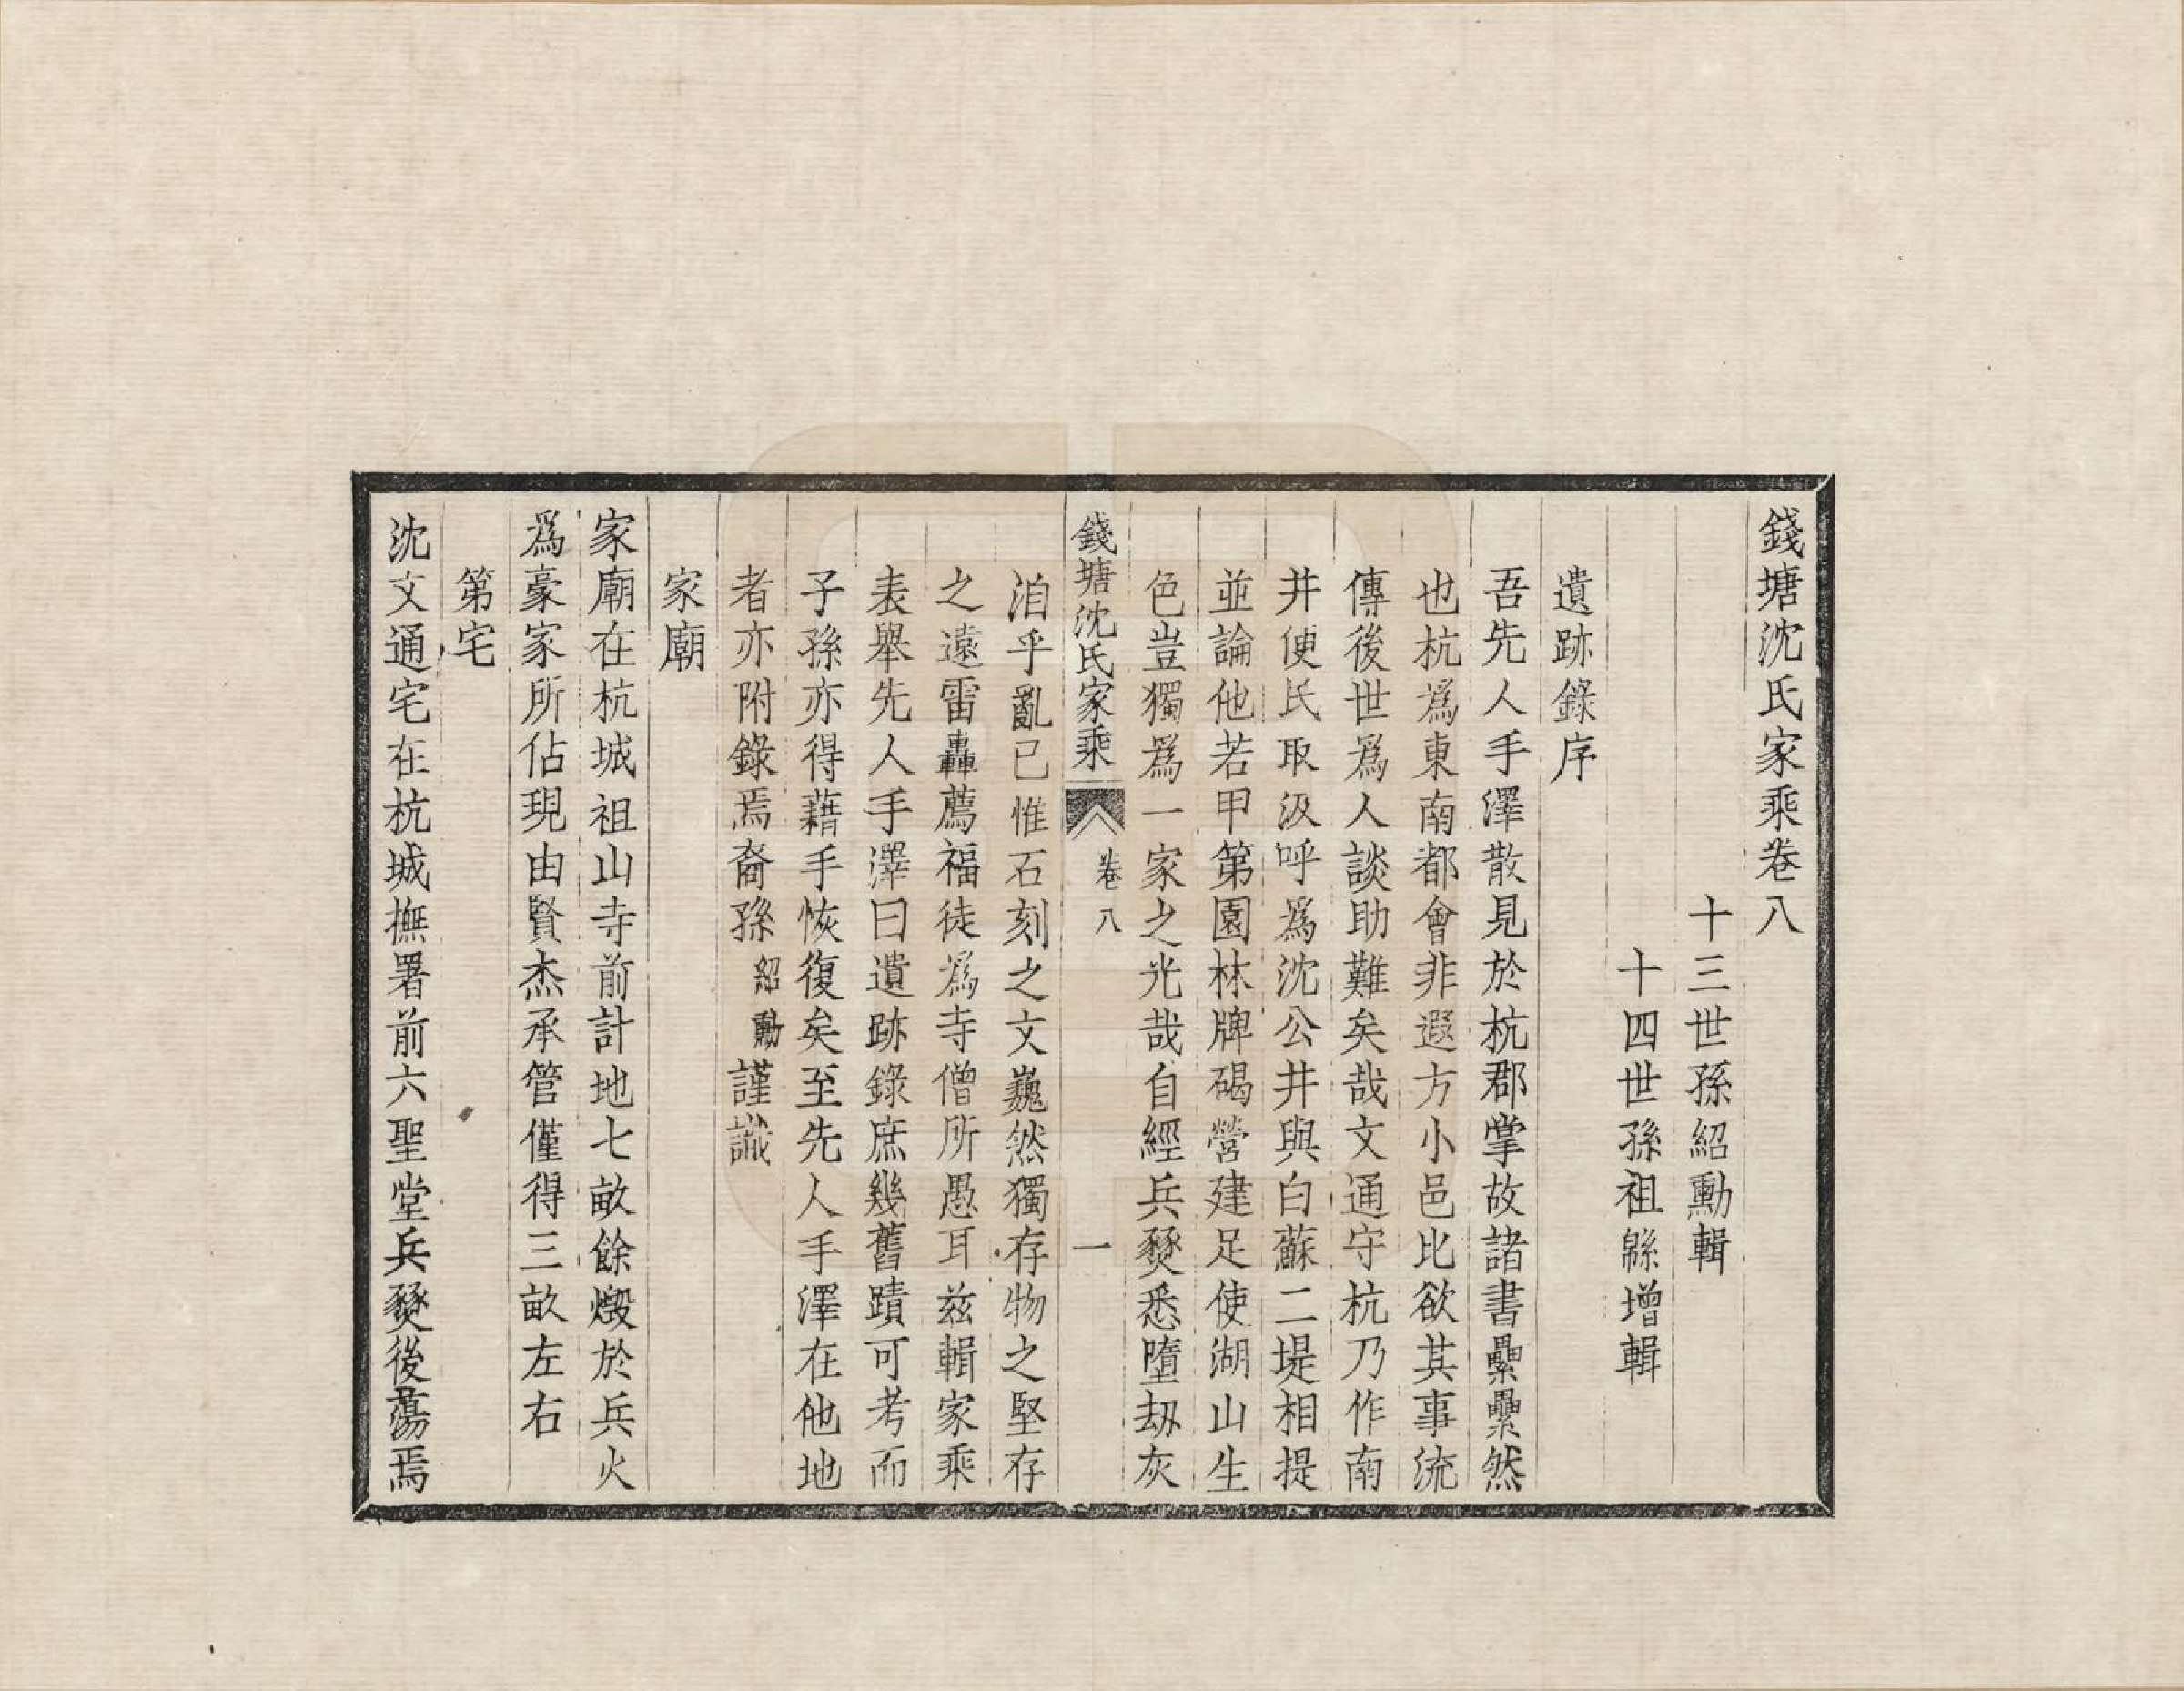 錢塘沈氏家乘卷八
十三世孫紹勳輯
十四世孫祖緜增輯
遺跡錄序
吾先人手澤散見於杭郡掌故諸書纍纍然
也杭爲東南都會非遐方小邑比欲其事流
傳後世爲人談助難矣哉文通守杭乃作南
井便民取汲呼爲沈公井與白蘇二堤相提
並論他若甲第園林牌碣營建足使湖山生
色豈獨爲一家之光哉自經兵燹悉墮劫灰
錢塘沈氏家乘
卷八
一
洎乎亂已惟石刻之文巍然獨存物之堅存
之遠雷轟薦福徒爲寺僧所愚耳兹輯家乘
表舉先人手澤曰遺跡錄庶幾舊蹟可考而
子孫亦得藉手恢復矣至先人手澤在他地
者亦附錄焉裔孫紹勳謹識
家廟
家廟在杭城祖山寺前計地七畝餘燬於兵火
爲豪家所佔現由賢杰承管僅得三畝左右
第宅
沈文通宅在杭城撫署前六聖堂兵燹後蕩焉